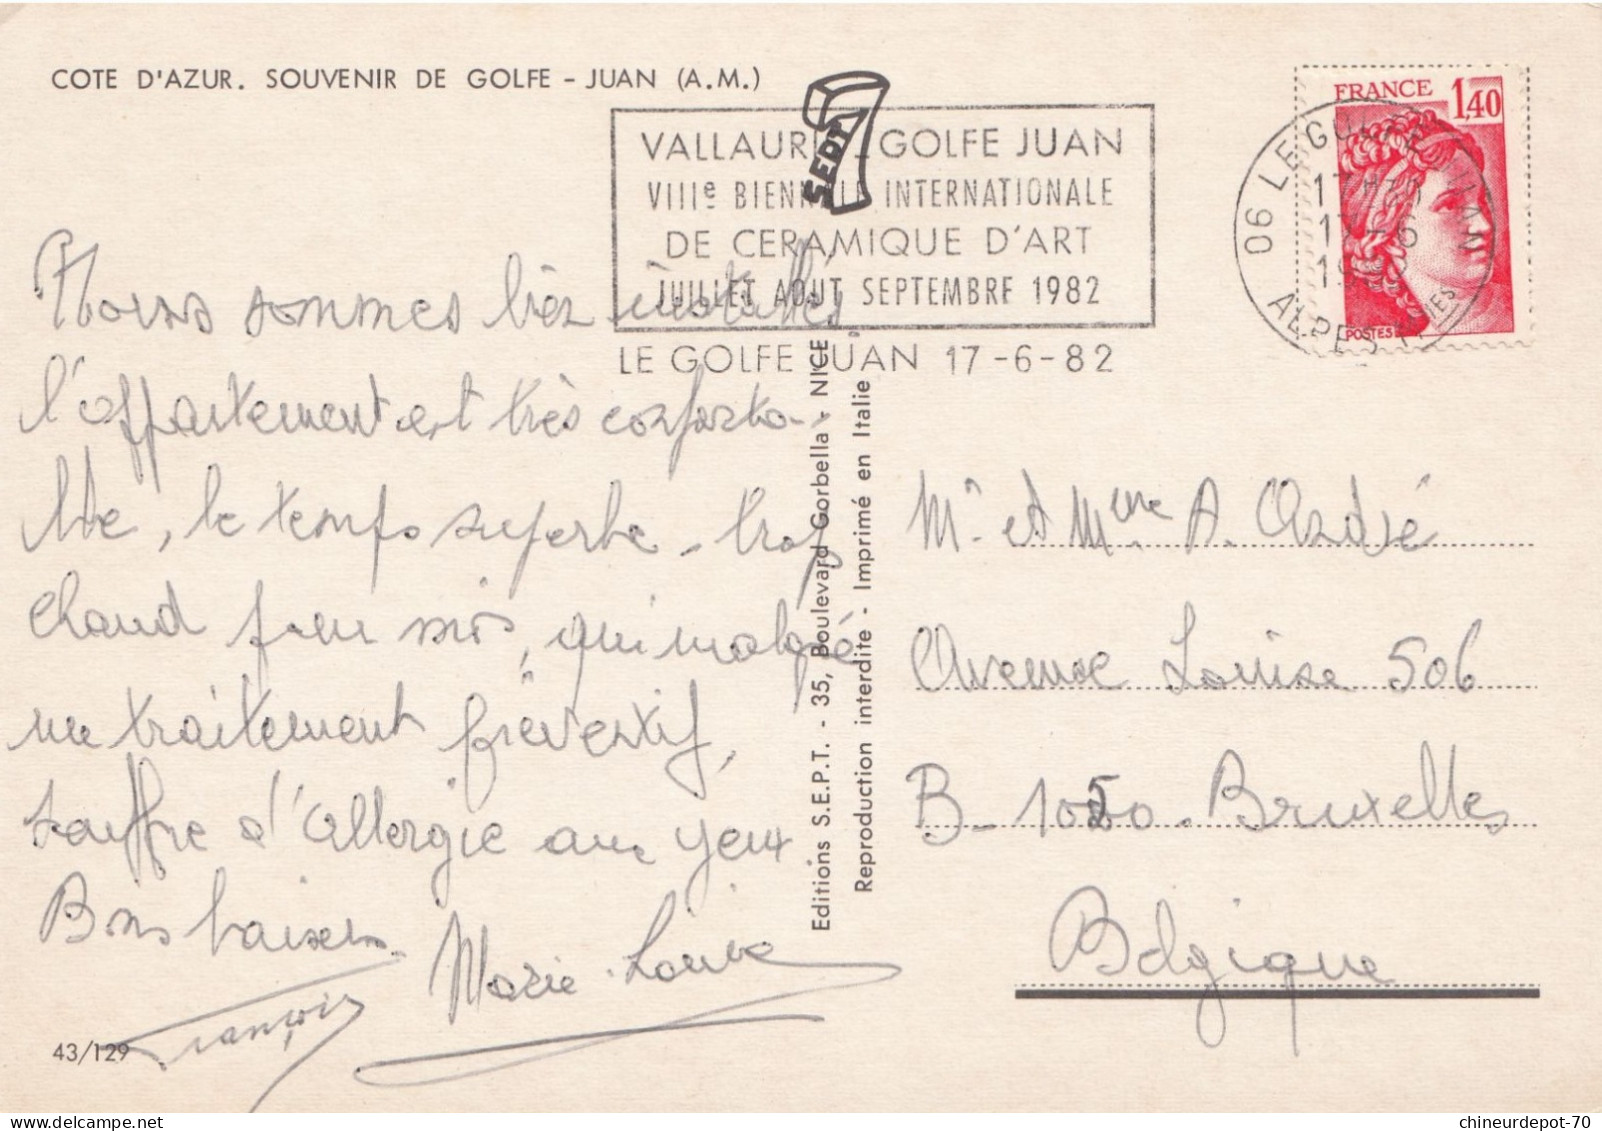 COTE D'AZUR. SOUVENIR DE GOLFE - JUAN (A.M.)
SEPT
VALLAURIS GOLFE JUAN
VIIIe BIENNALE INTERNATIONALE
DE CERAMIQUE D'ART
JUILLET AOUT SEPTEMBRE 1982
LE GOLFE JUAN 17-6-82
FRANCE 1,40
POSTES
06 LE GOLFE JUAN
17H30
17-6
1982
ALPES MMES
Nous sommes bien installés,
l'appartement est très conforta-
ble, le temps superbe - trop
chaud pour moi, qui malgré
un traitement préventif,
souffre d'allergie aux yeux
Bons baisers
François Marie-Louise
43/129
Editions S.E.P.T. - 35, Boulevard Gorbella - NICE
Reproduction interdite - Imprimé en Italie
Mr. et Mme A. André
Avenue Louise 506
B-1050-Bruxelles
Belgique
chineurdepot-70